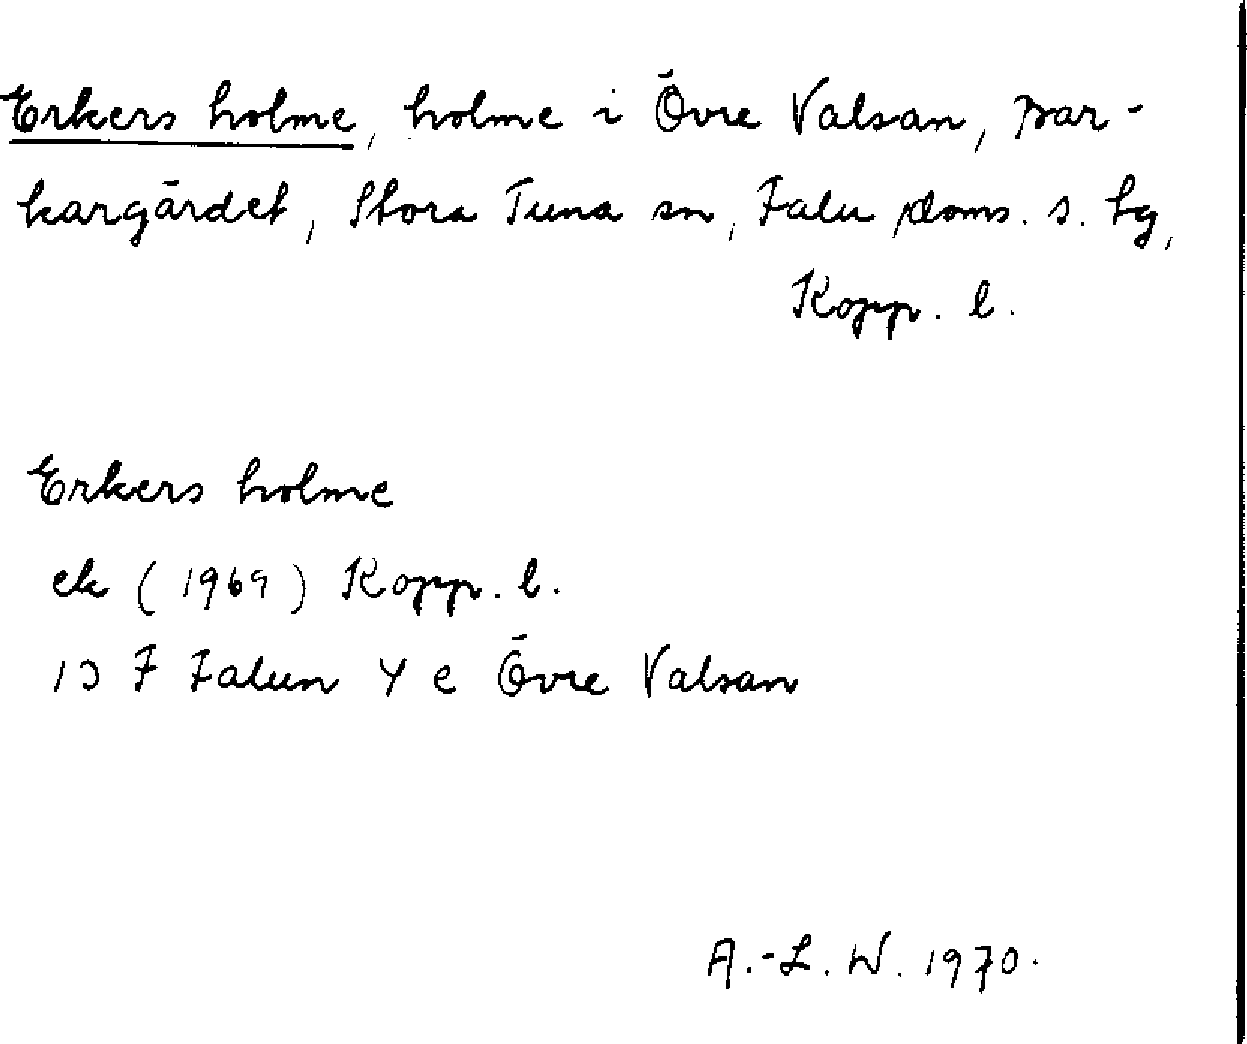 Erkers holme, holme i Övre Valsan, Bar-
kargärdet, Stora Tuna sn, Falu doms. s. tg,
Kopp. l.
Erkers holme
ek (1969) Kopp. l.
13 F Falun 4 e Övre Valsan
A.-L. W. 1970.